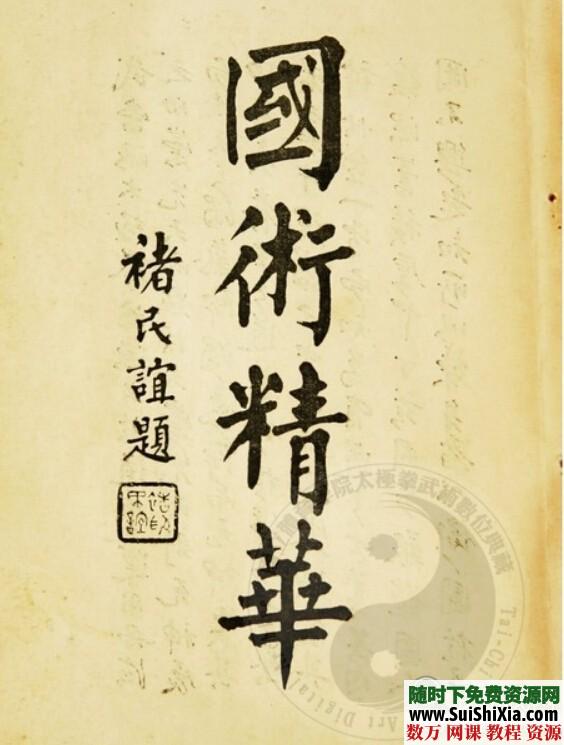 國術精華
褚民誼題
院太極拳武術數位典藏
Tai-Chi
Art Digital
随时下免费资源网
www.SuiShiXia.com
数万 网课 教程 资源